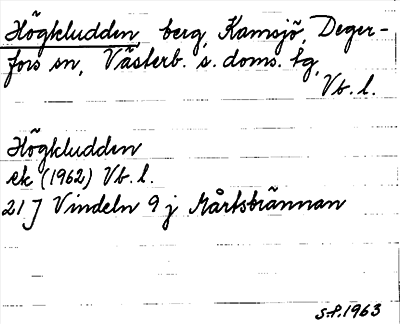 Högkludden, berg, Kamsjö, Deger-
fors sn, Västerb. s. doms. tg,
Vb. l.
Högkludden
ek (1962) Vb. l.
21 J Vindeln 9 j Mårtsbrännan
S.P. 1963